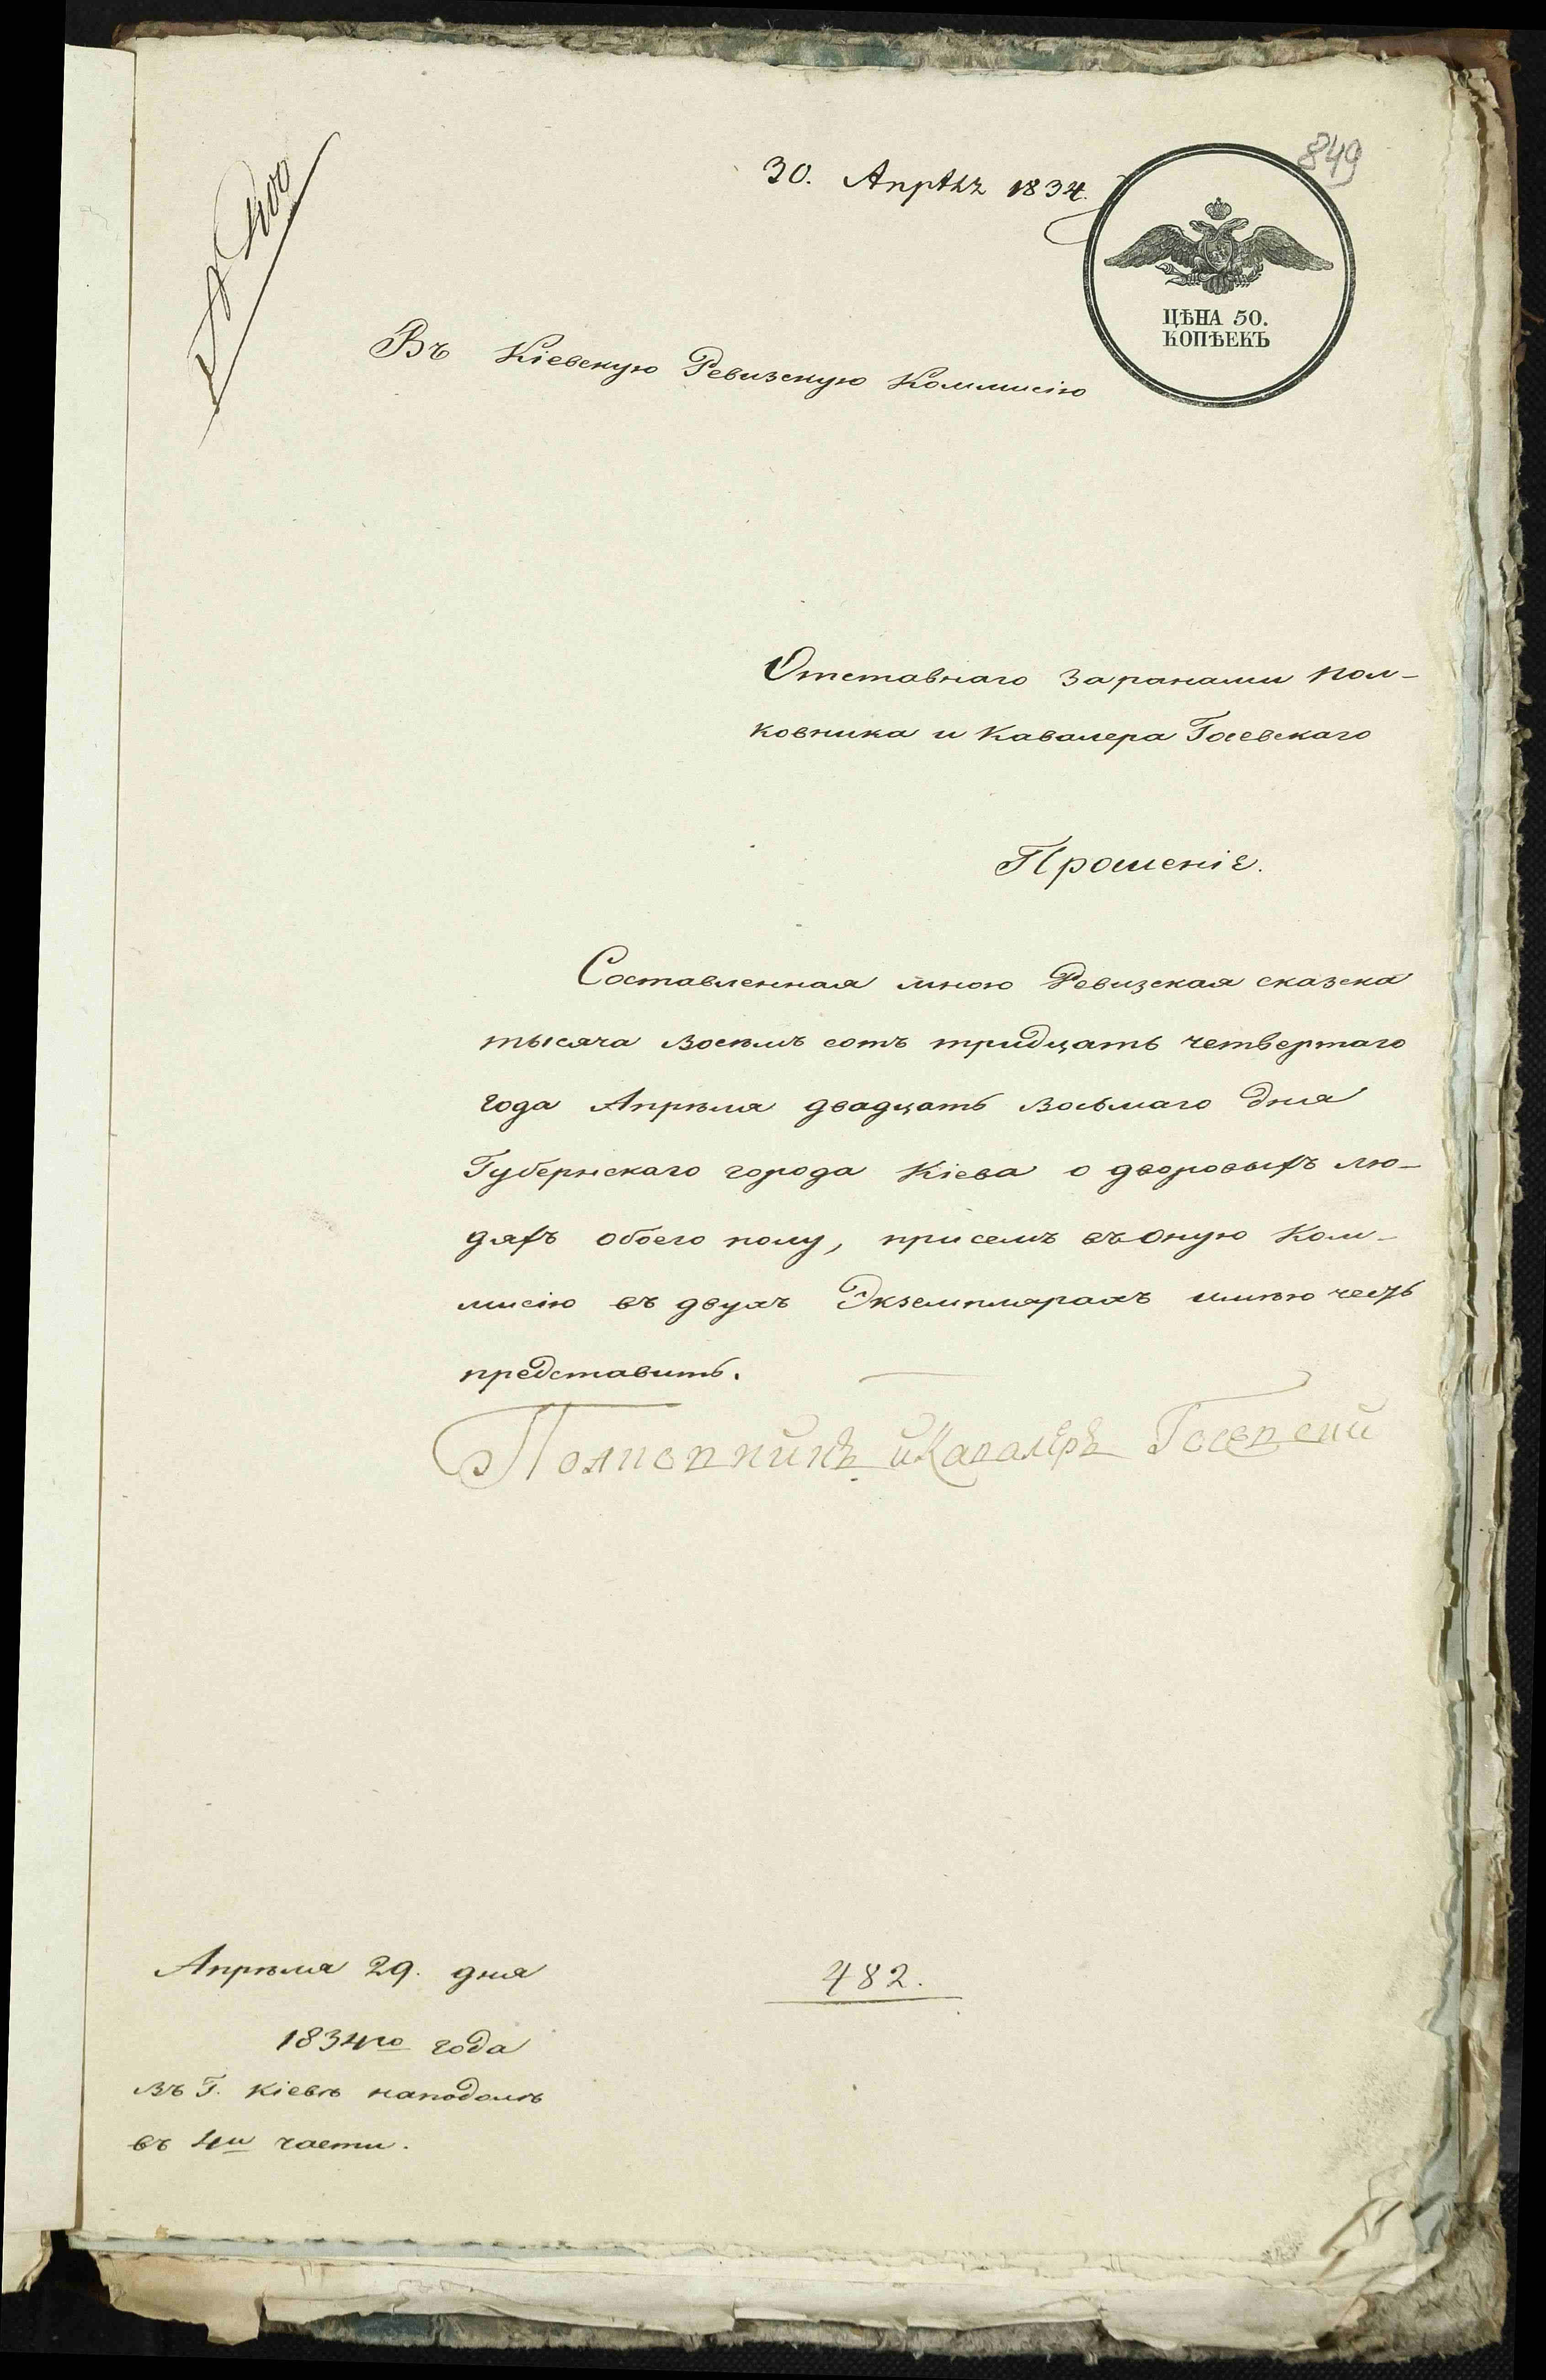 849
30. Апрѣля 1834.
ЦѢНА 50.
КОПѢЕКЪ
Въ Кіевскую Ревизскую Коммисію
Отставнаго за ранами пол-
ковника и Кавалера Гоевскаго
Прошеніе.
Составленная мною Ревизская сказска
тысяча восемъ сотъ тридцать четвертаго
года Апрѣля двадцать восьмаго дня
Губернскаго города Кіева о дворовыхъ лю-
дяхъ обоего полу, присемъ въ оную Ком-
мисію въ двухъ Экземплярахъ имѣю честь
представить.
Полковникъ и Кавалеръ
Апрѣля 29. дня
1834го года
въ Г. Кіевѣ наподолѣ
въ 4й части.
482.